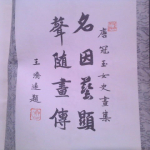 唐冠玉女史畫集
名因藝顯
聲隨畫傳
王濟遠題